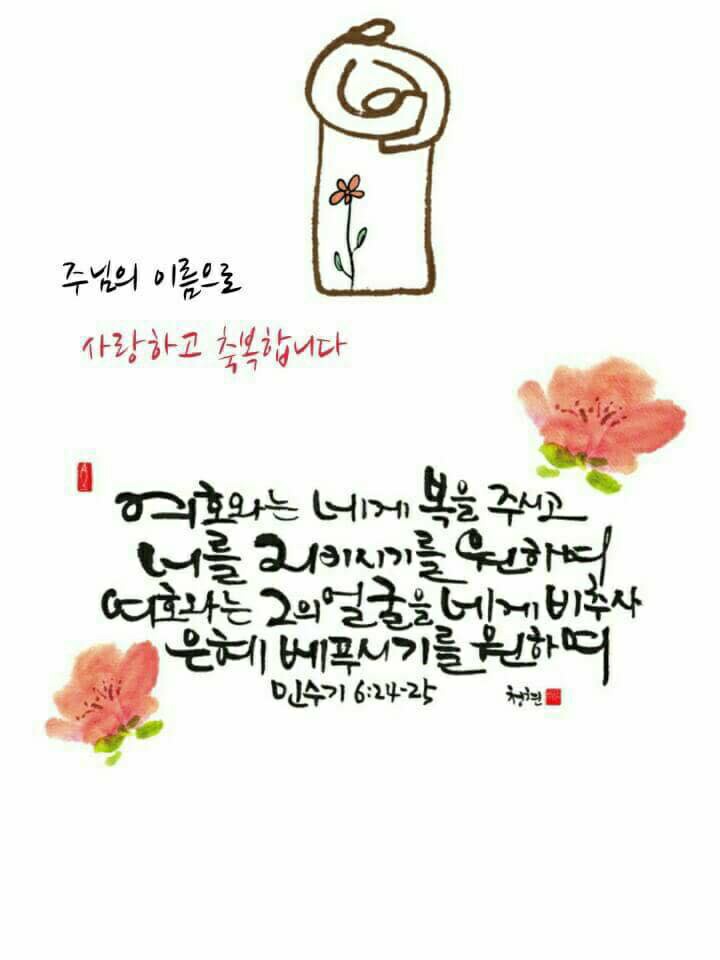 주님의 이름으로
사랑하고 축복합니다
여호와는 네게 복을 주시고
너를 지키시기를 원하며
여호와는 그의 얼굴을 네게 비추사
은혜 베푸시기를 원하며
민수기 6:24-25
청현